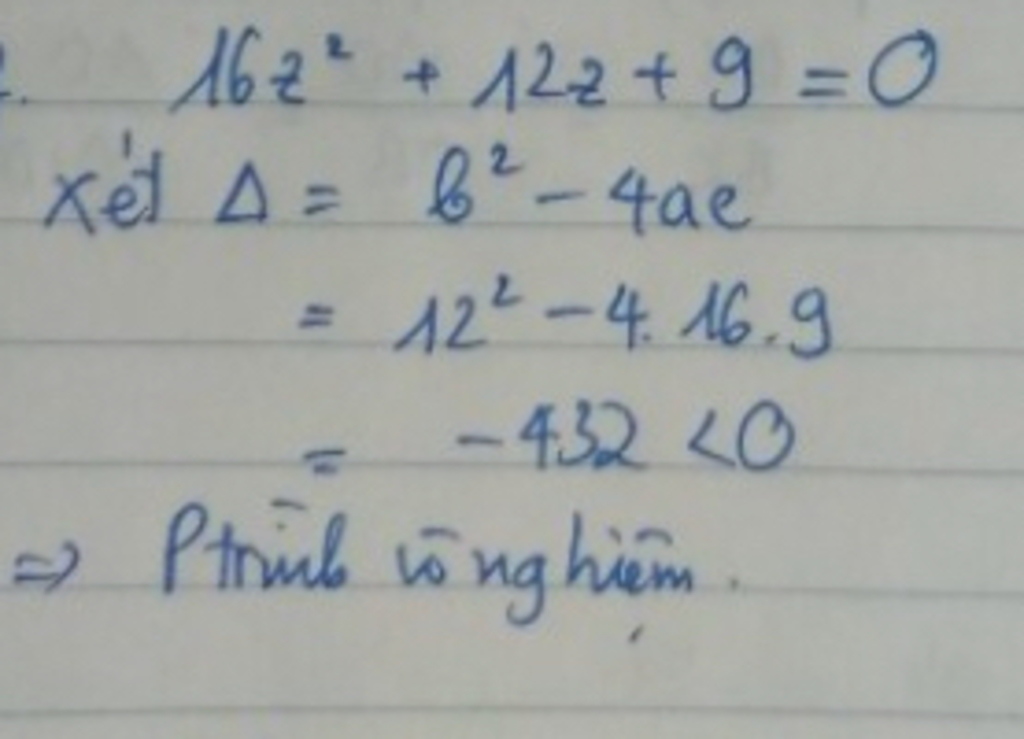 16z² + 12z + 9 = 0
xét Δ = b² - 4ac
= 12² - 4.16.9
= -432 < 0
=> Ptrình vô nghiệm.